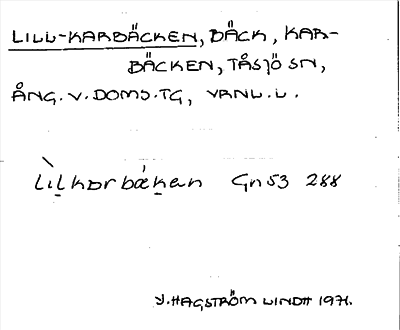 LILL-KARBÄCKEN, BÄCK, KAR-
BÄCKEN, TÅSJÖ SN,
ÅNG. V. DOMS. TG, VRNL.L.
Lìḷkɒrbák̠en Gn 53 288
J. HAGSTRÖM LINDH 1971.